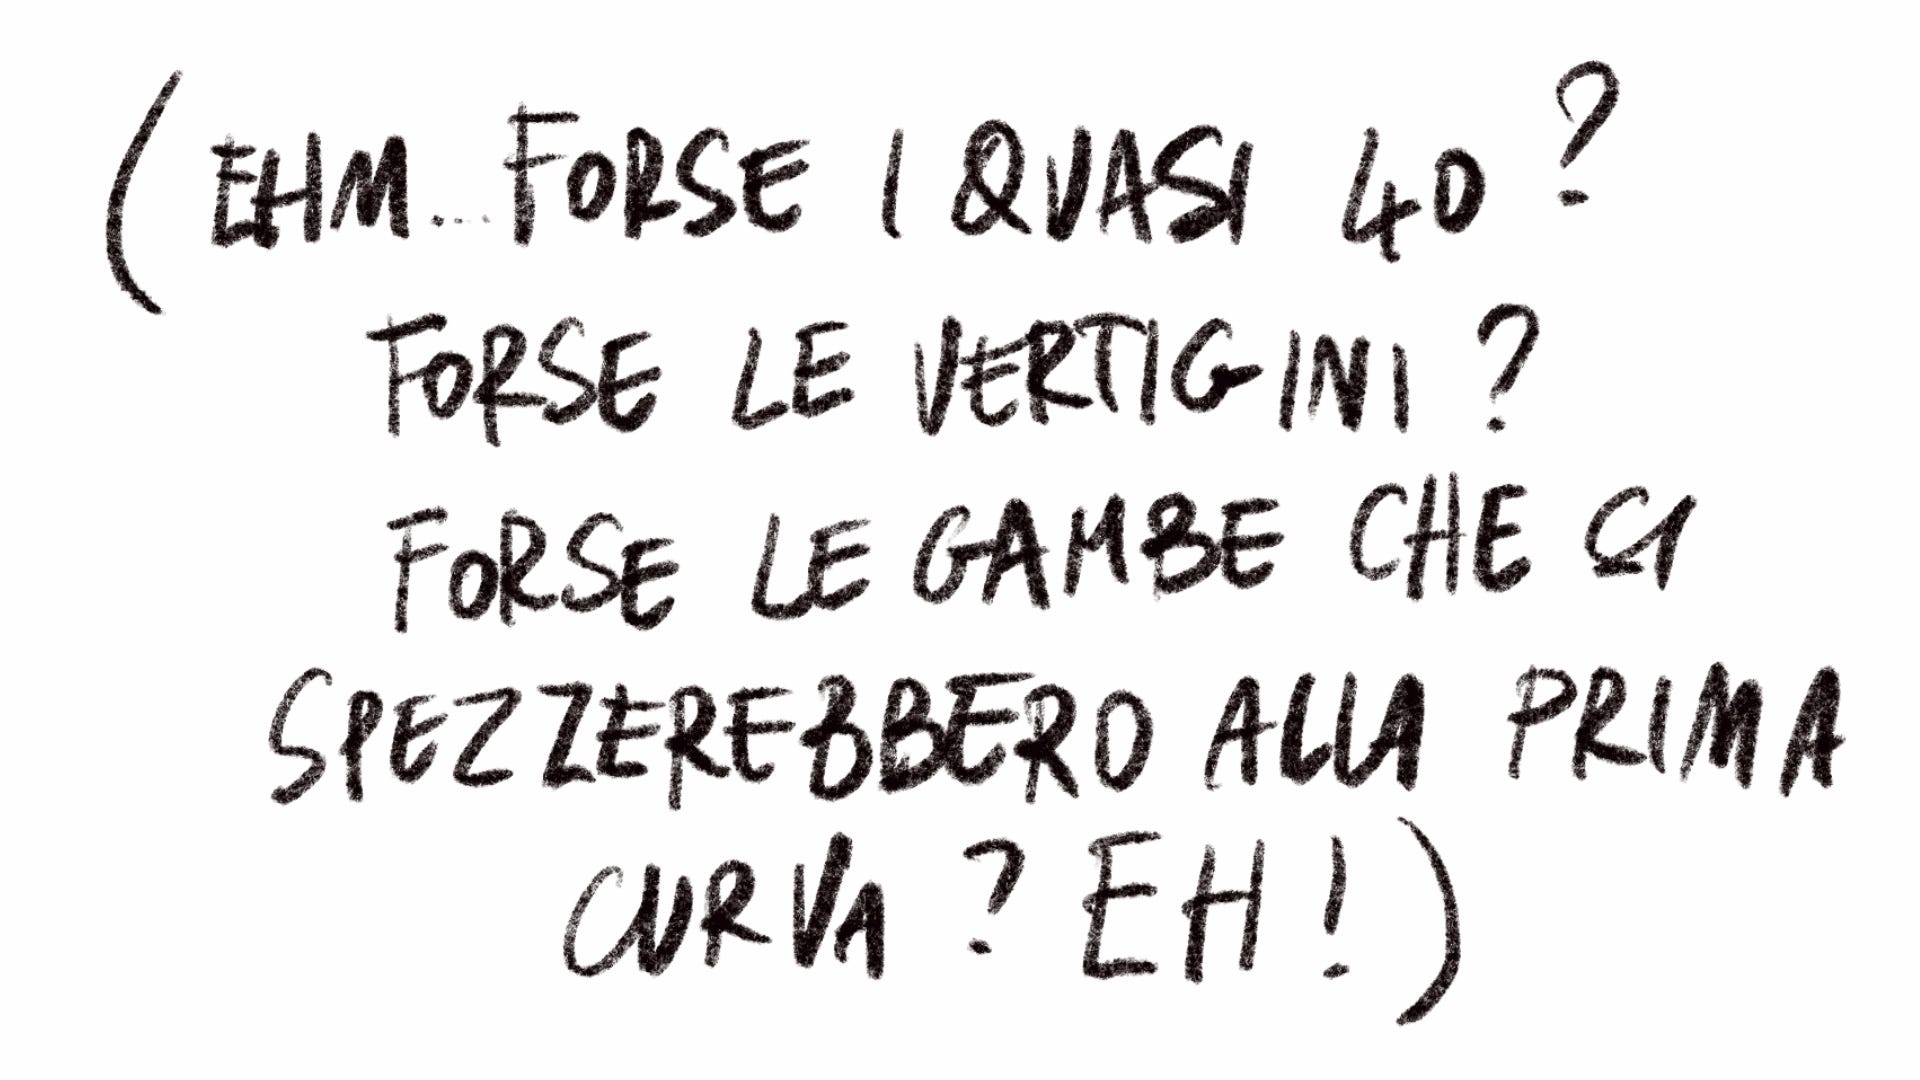 (EHM...FORSE I QUASI 40?
FORSE LE VERTIGINI?
FORSE LE GAMBE CHE CI
SPEZZEREBBERO ALLA PRIMA
CURVA? EH!)